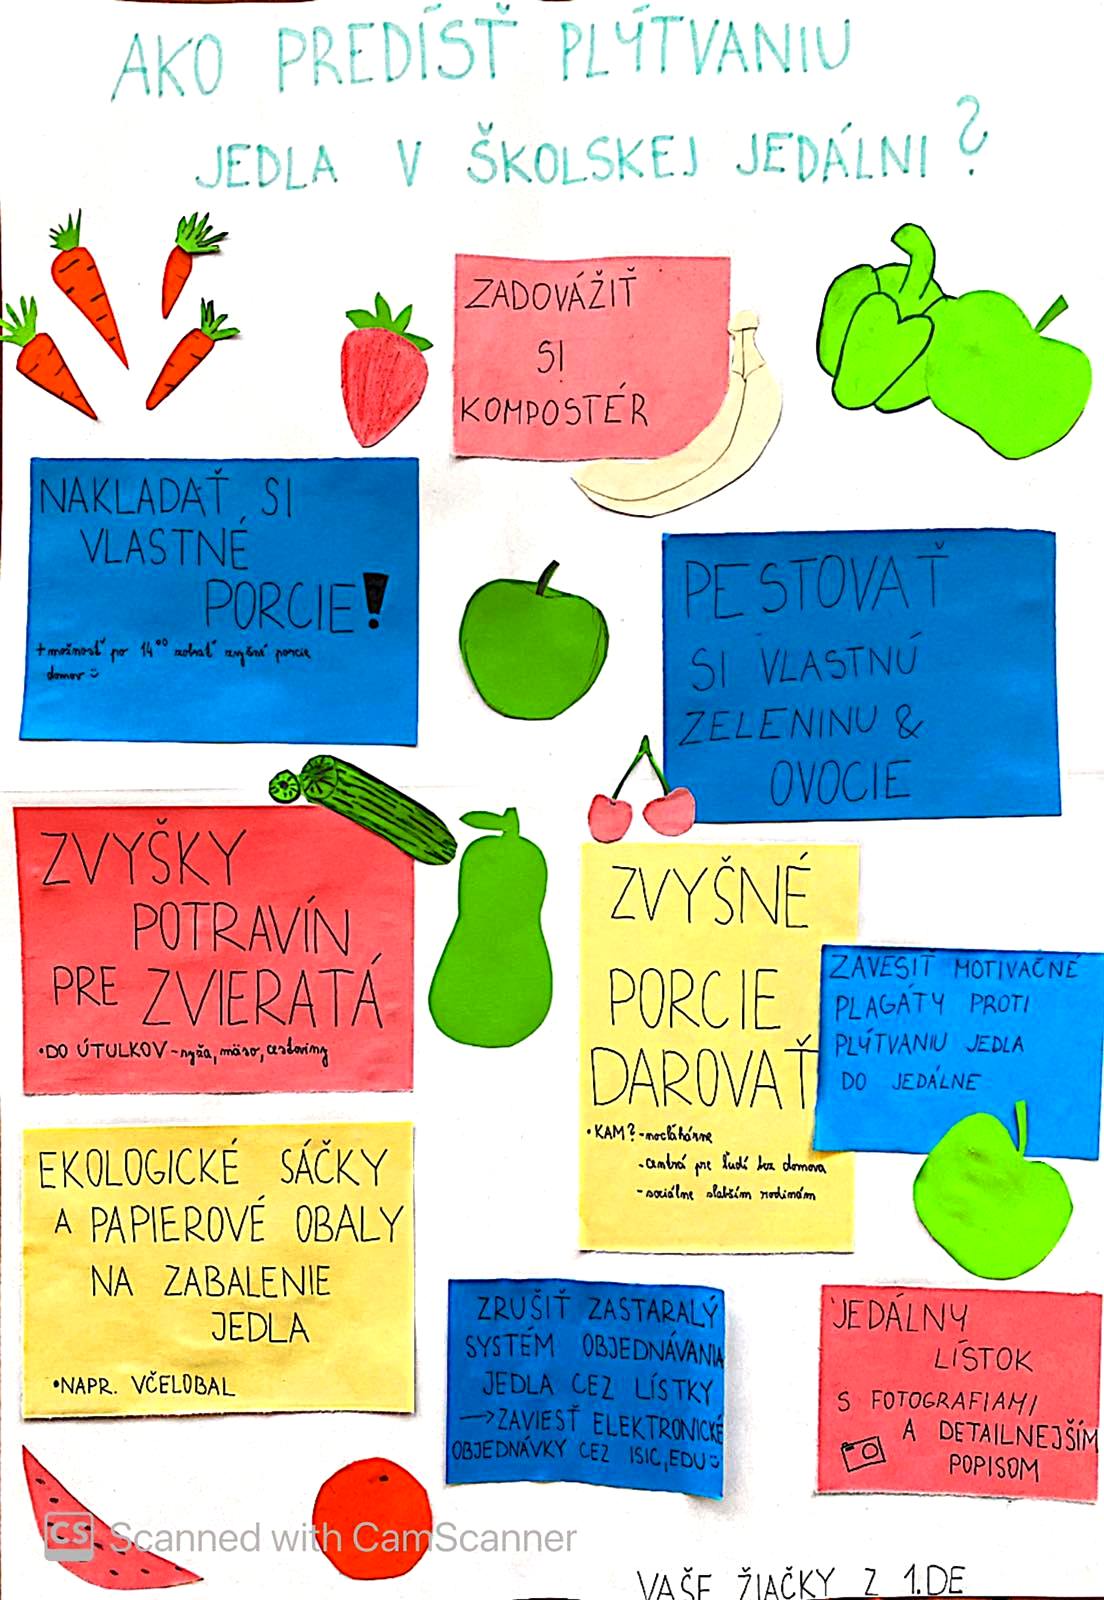 AKO PREDÍSŤ PLÝTVANIU
JEDLA V ŠKOLSKEJ JEDÁLNI?
ZADOVÁŽIŤ
SI
KOMPOSTÉR
NAKLADAŤ SI
VLASTNÉ
PORCIE!
+ možnosť po 14⁰⁰ zobrať zvyšné porcie
domov
PESTOVAŤ
SI VLASTNÚ
ZELENINU &
OVOCIE
ZVYŠKY
POTRAVÍN
PRE ZVIERATÁ
•DO ÚTULKOV - ryža, mäso, cestoviny
ZVYŠNÉ
PORCIE
DAROVAŤ
•KAM? - nocľahárne
- centrá pre ľudí bez domova
- sociálne slabším rodinám
ZAVESIŤ MOTIVAČNÉ
PLAGÁTY PROTI
PLÝTVANIU JEDLA
DO JEDÁLNE
EKOLOGICKÉ SÁČKY
A PAPIEROVÉ OBALY
NA ZABALENIE
JEDLA
•NAPR. VČELOBAL
ZRUŠIŤ ZASTARALÝ
SYSTÉM OBJEDNÁVANIA
JEDLA CEZ LÍSTKY
→ZAVIESŤ ELEKTRONICKÉ
OBJEDNÁVKY CEZ ISIC, EDU
JEDÁLNY
LÍSTOK
S FOTOGRAFIAMI
A DETAILNEJŠÍM
POPISOM
CS Scanned with CamScanner
VAŠE ŽIAČKY Z 1.DE